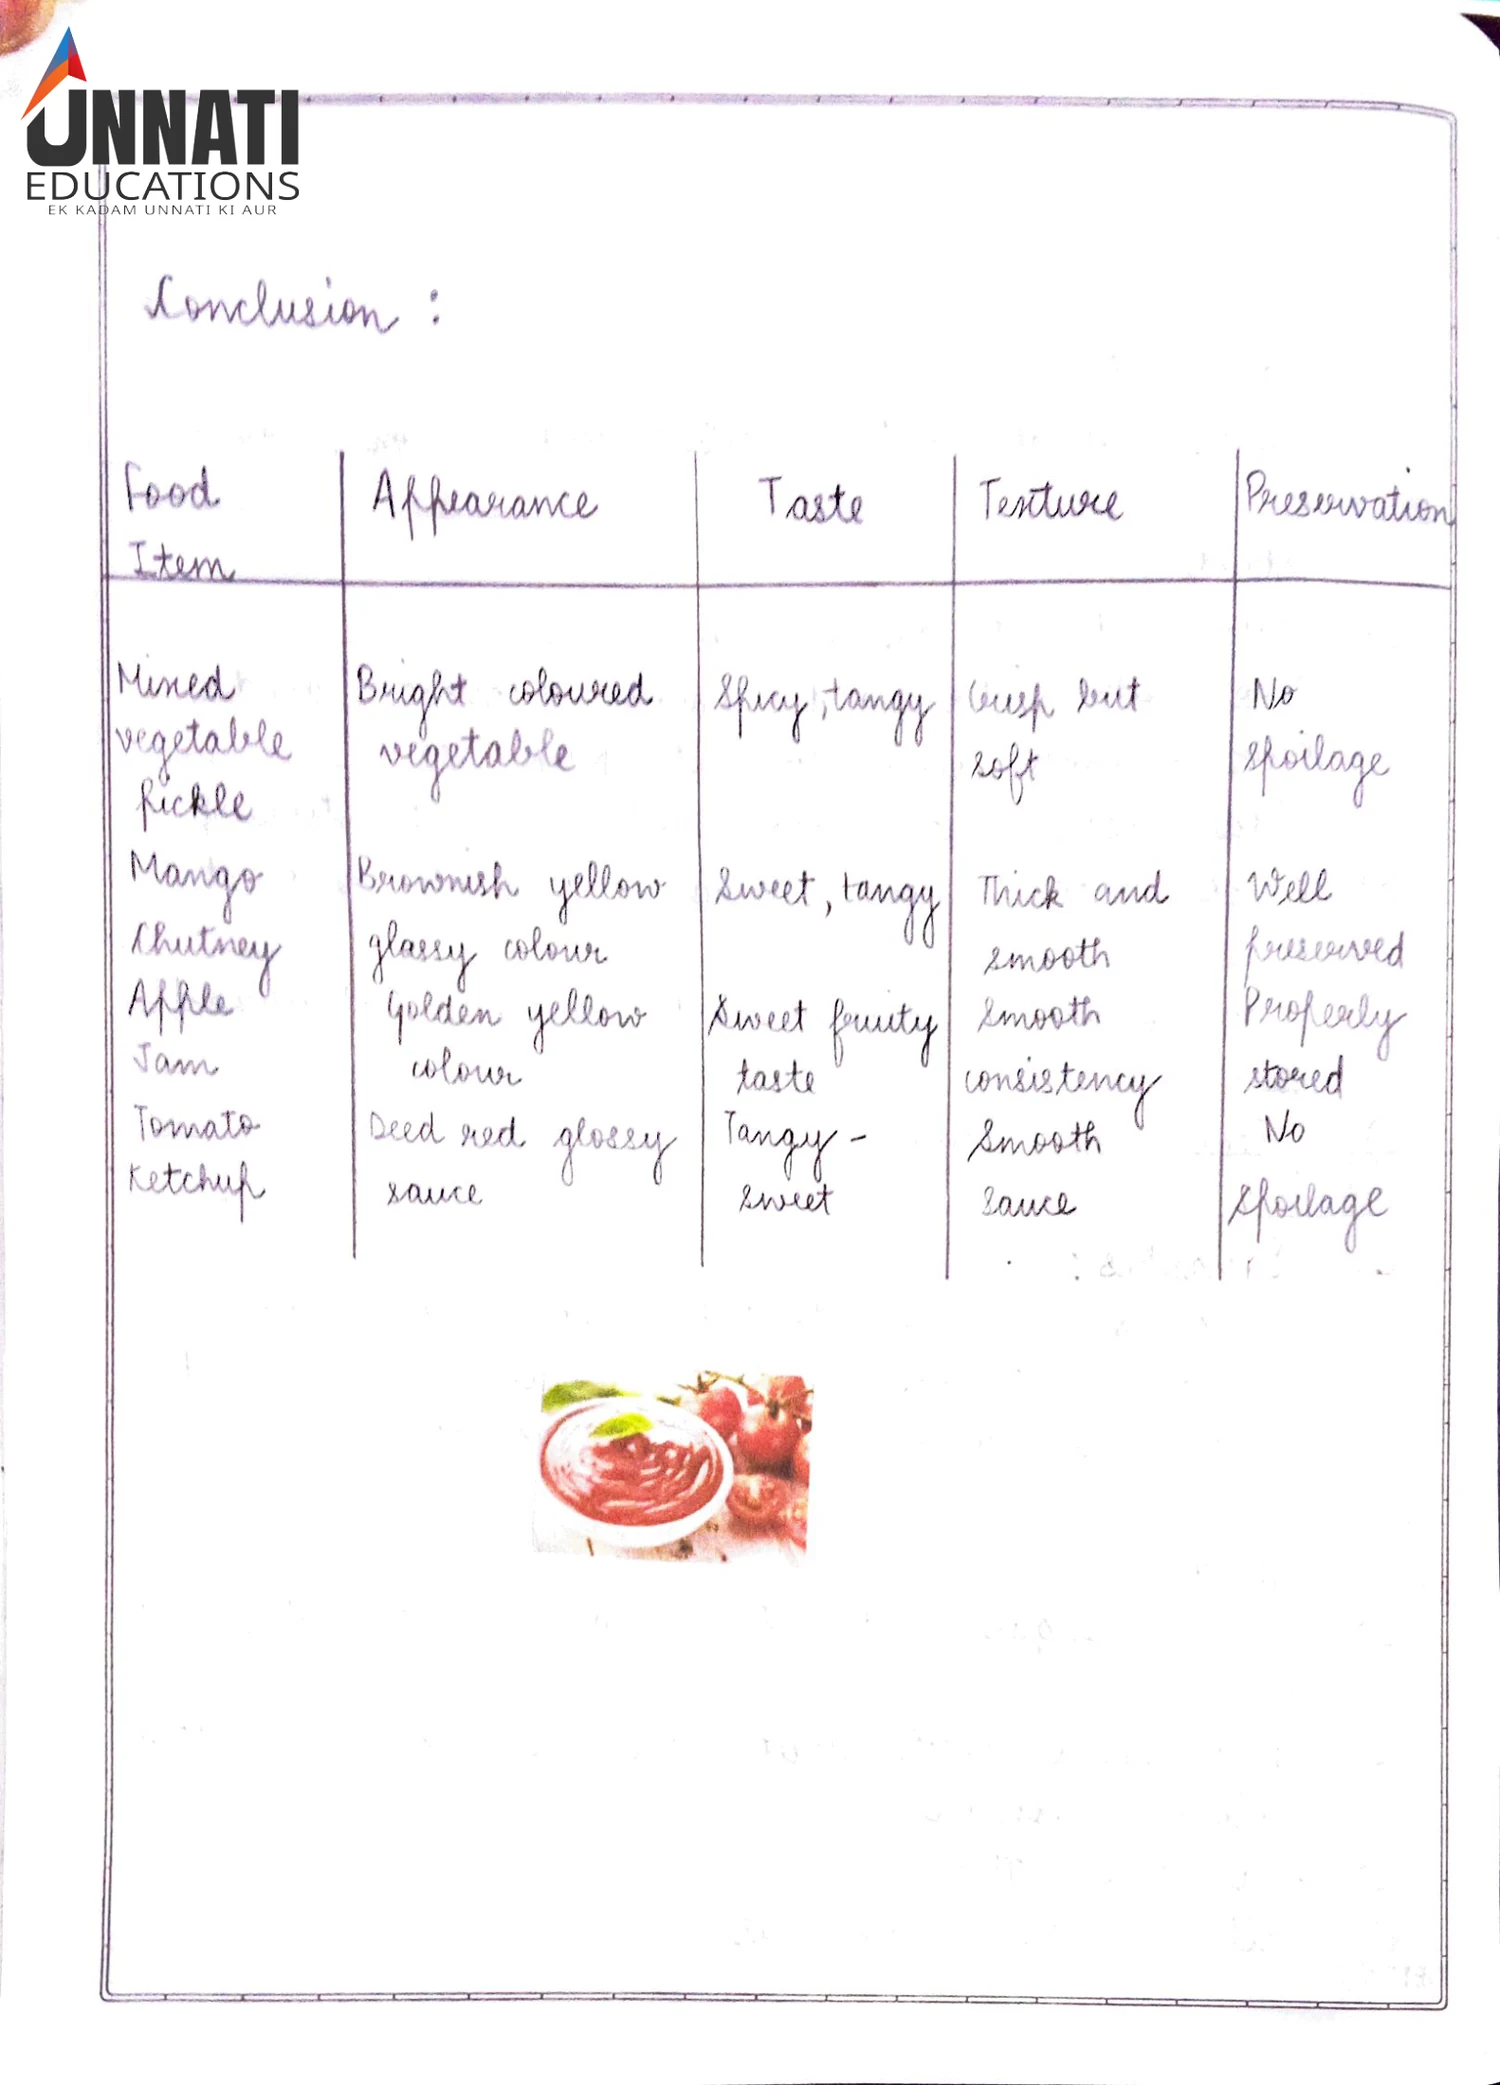 UNNATI
EDUCATIONS
EK KADAM UNNATI KI AUR
Conclusion :
Food Item | Appearance | Taste | Texture | Preservation
Mixed vegetable pickle | Bright coloured vegetable | Spicy, tangy | Crisp but soft | No spoilage
Mango Chutney | Brownish yellow glassy colour | Sweet, tangy | Thick and smooth | Well preserved
Apple Jam | Golden yellow colour | Sweet fruity taste | Smooth consistency | Properly stored
Tomato Ketchup | Deed red glossy sauce | Tangy - sweet | Smooth sauce | No spoilage